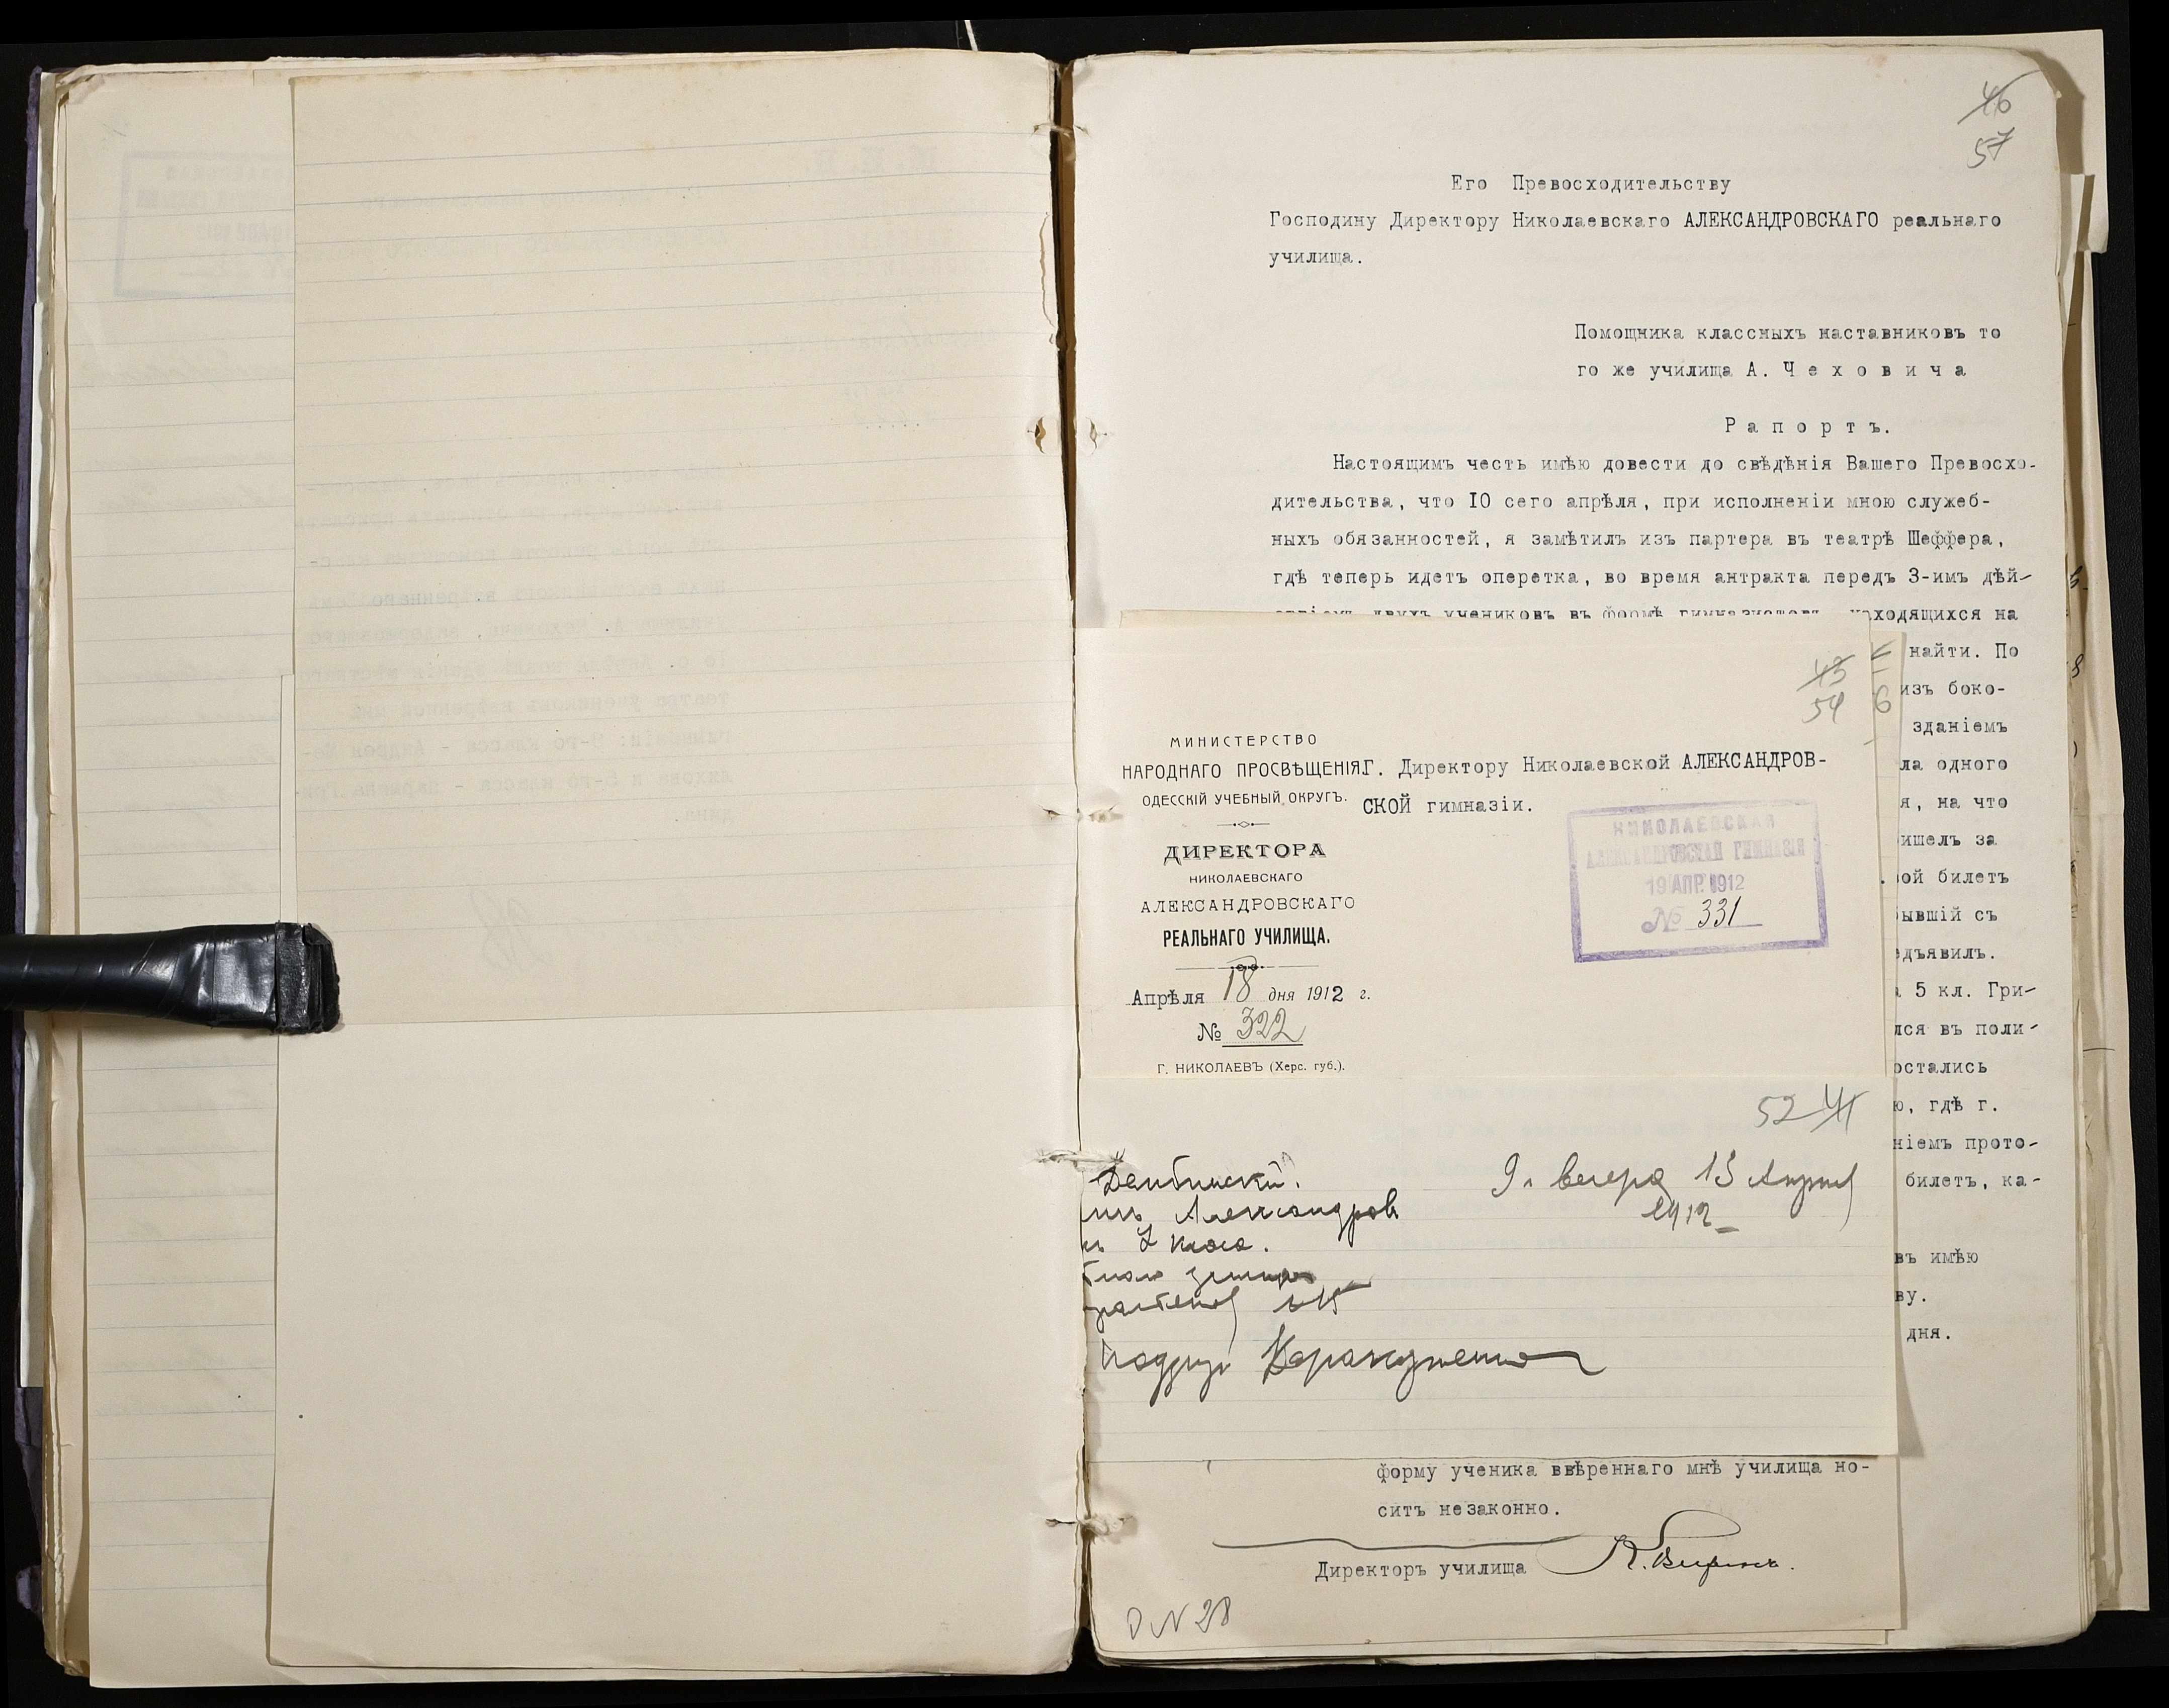 46
57
Его Превосходительству
Господину Директору Николаевскаго АЛЕКСАНДРОВСКАГО реальнаго
училища.
Помощника классныхъ наставниковъ то
го же училища А. Чеховича
Рапортъ.
Настоящимъ честь имѣю довести до свѣдѣнія Вашего Превосхо-
дительства, что IO сего апрѣля, при исполненіи мною служеб-
ныхъ обязанностей, я замѣтилъ изъ партера въ театрѣ Шеффера,
гдѣ теперь идетъ оперетка, во время антракта передъ 3-имъ дѣй-
двухъ учениковъ въ формѣ гимназистовъ, находящихся на
найти. По
изъ боко-
зданіемъ
ла одного
я, на что
ишелъ за
вой билетъ
бывшій съ
едъявилъ.
5 кл. Гри-
лся въ поли-
остались
ю, гдѣ г.
ніемъ прото-
билетъ, ка-
въ имѣю
ву.
дня.
43
54
6
МИНИСТЕРСТВО
НАРОДНАГО ПРОСВѢЩЕНІЯ.
ОДЕССКІЙ УЧЕБНЫЙ ОКРУГЪ.
ДИРЕКТОРА
НИКОЛАЕВСКАГО
АЛЕКСАНДРОВСКАГО
РЕАЛЬНАГО УЧИЛИЩА.
Апрѣля 18 дня 1912 г.
№ 322
Г. НИКОЛАЕВЪ (Херс. губ.).
Г. Директору Николаевской АЛЕКСАНДРОВ-
СКОЙ гимназіи.
НИКОЛАЕВСКАЯ
АЛЕКСАНДРОВСКАЯ ГИМНАЗІЯ
19 АПР. 1912
№ 331
52 41
9 ч вечера 13 Апреля
1912
Александров
форму ученика ввѣреннаго мнѣ училища но-
ситъ незаконно.
Директоръ училища
N 28